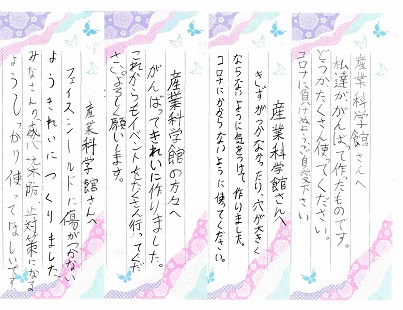 産業科学館さんへ
私達ががんばって作ったものです。
どうかたくさん使ってください。
コロナに負けぬようご自愛下さい。
産業科学館さんへ
きずがつかなかったり、穴が大きく
ならないように気をつけて、作りました。
コロナにかからないように使ってください。
産業科学館の方々へ
がんばってきれいに作りました。
これからもイベントをたくさん行ってくだ
さい。よろしく願いします。
産業科学館さんへ
フェイスシールドに傷がつかない
ようきれいにつくりました。
みなさんの感染防止対策になる
ようしっかり使ってほしいです